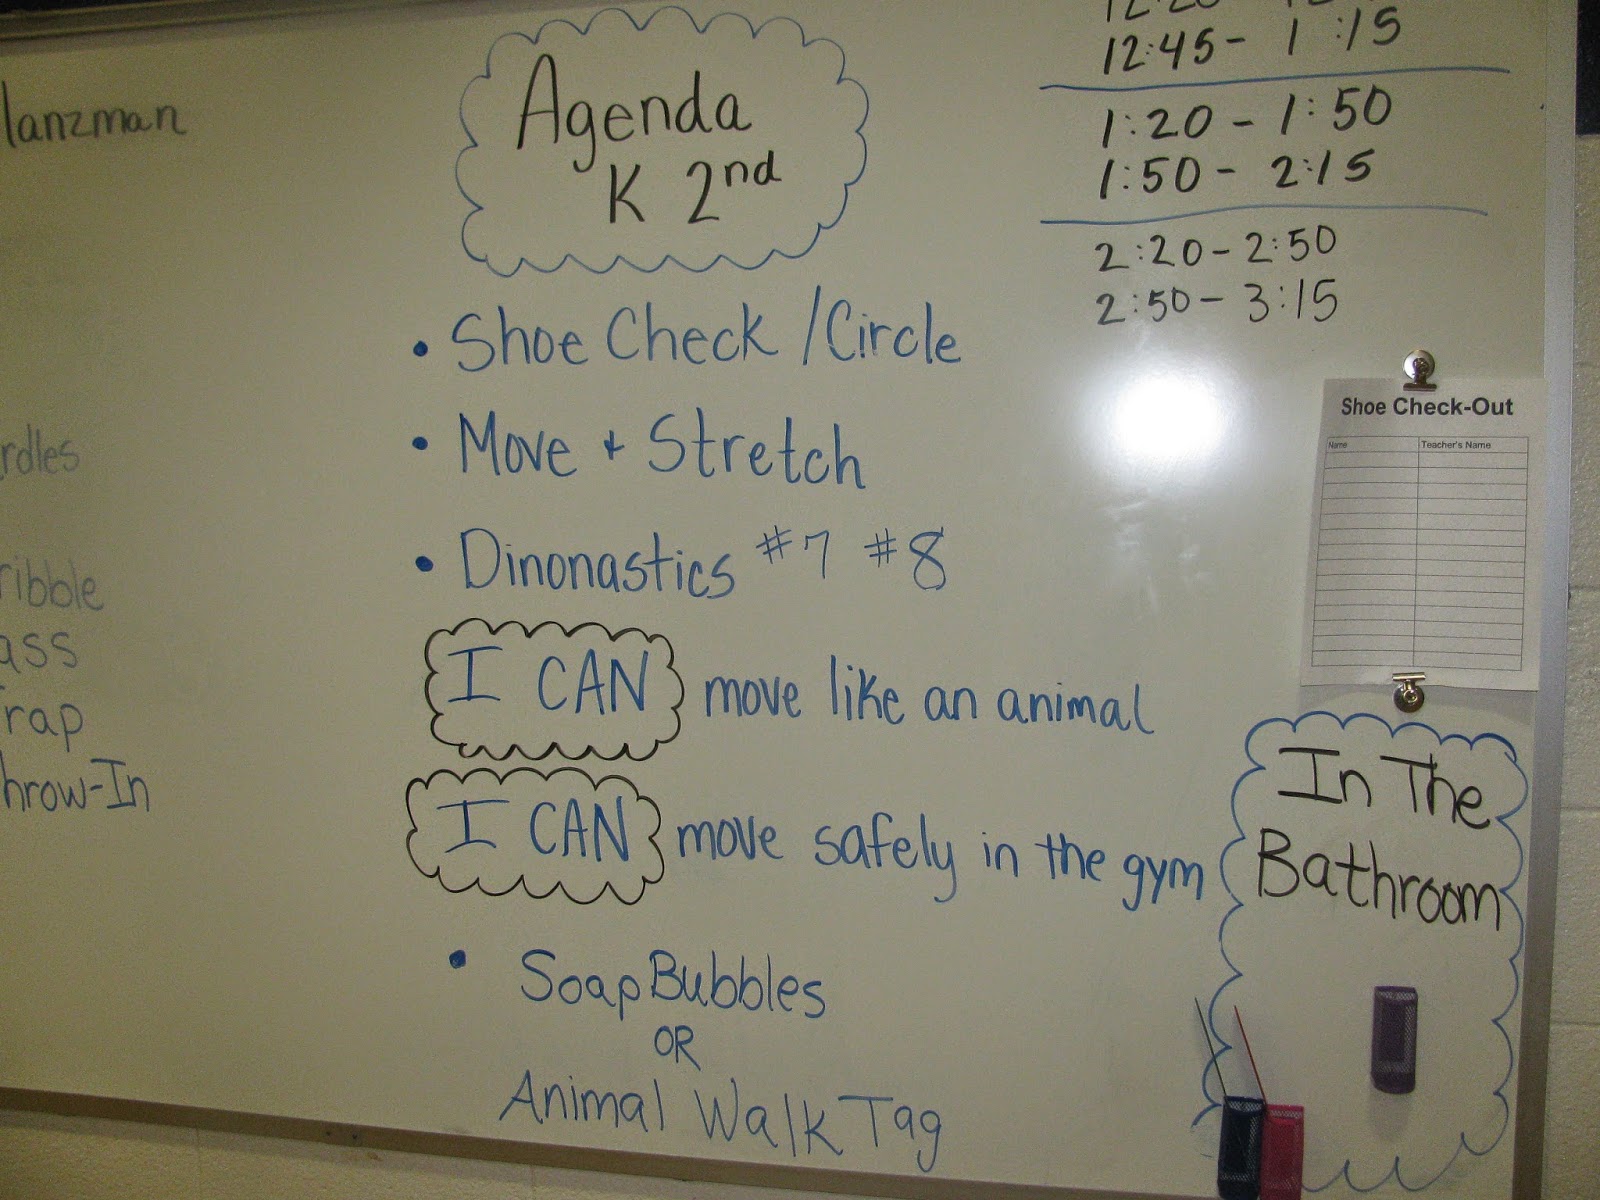 Agenda
K 2nd
• Shoe Check / Circle
• Move + Stretch
• Dinonastics #7 #8
I CAN move like an animal
I CAN move safely in the gym
• Soap Bubbles
OR
Animal Walk Tag
lanzman
rdles
ribble
ass
rap
hrow-In
12:45 - 1:15
1:20 - 1:50
1:50 - 2:15
2:20 - 2:50
2:50 - 3:15
Shoe Check-Out
Name Teacher's Name
In The
Bathroom